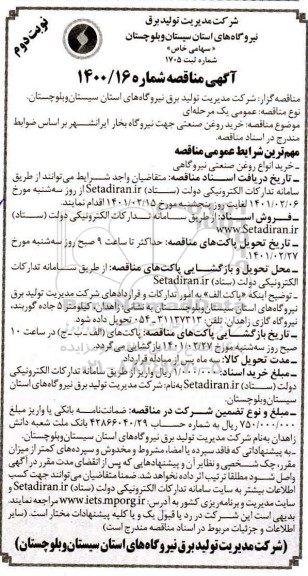 نوبت دوم
شرکت مدیریت تولید برق
نیروگاه‌های استان سیستان و بلوچستان
«سهامی خاص»
شماره ثبت ۱۷۰۵
آگهی مناقصه شماره ۱۴۰۰/۱۶
مناقصه‌گزار: شرکت مدیریت تولید برق نیروگاه‌های استان سیستان و بلوچستان.
نوع مناقصه: عمومی یک مرحله‌ای
موضوع مناقصه: خرید روغن صنعتی جهت نیروگاه بخار ایرانشهر بر اساس ضوابط
مندرج در اسناد مناقصه.
مهم‌ترین شرایط عمومی مناقصه
ـ خرید انواع روغن صنعتی نیروگاهی
ـ تاریخ دریافت اسناد مناقصه: متقاضیان واجد شرایط می‌توانند از طریق
سامانه تدارکات الکترونیکی دولت (ستاد) Setadiran.ir از روز سه‌شنبه مورخ
۱۴۰۱/۰۲/۰۶ لغایت روز پنجشنبه مورخ ۱۴۰۱/۰۲/۱۵ اقدام نمایند.
ـ فروش اسناد: از طریق سامانه تدارکات الکترونیکی دولت (ستاد)
www.Setadiran.ir
ـ تاریخ تحویل پاکت‌های مناقصه: حداکثر تا ساعت ۹ صبح روز سه‌شنبه مورخ
۱۴۰۱/۰۲/۲۷
ـ محل تحویل و بازگشایی پاکت‌های مناقصه: از طریق سامانه تدارکات
الکترونیکی دولت (ستاد) Setadiran.ir
ـ توضیح اینکه «پاکت الف» به امور تدارکات و قراردادهای شرکت مدیریت تولید برق
نیروگاه‌های استان سیستان و بلوچستان به نشانی: زاهدان، کیلومتر ۵ جاده گوربند،
نیروگاه گازی زاهدان، تلفن: ۳۱۱۳۷۲۱۳ـ۰۵۴ تحویل داده شود.
ـ تاریخ بازگشایی پاکت‌های مناقصه: پاکت‌های (الف، ب، ج) در ساعت ۱۰
صبح روز سه‌شنبه مورخ ۱۴۰۱/۰۲/۲۷ بازگشایی می‌گردد.
ـ مدت تحویل کالا: سه ماه پس از مبادله قرارداد
ـ مبلغ خرید اسناد: ۱/۰۰۰/۰۰۰ ریال واریز از طریق سامانه تدارکات الکترونیکی
دولت (ستاد) Setadiran.ir به‌نام: شرکت مدیریت تولید برق نیروگاه‌های استان
سیستان و بلوچستان.
ـ مبلغ و نوع تضمین شرکت در مناقصه: ضمانت‌نامه بانکی یا واریز مبلغ
۷۵۰/۰۰۰/۰۰۰ ریال به شماره حساب ۴۲۸۶۶۰۴۰/۲۹ بانک ملت شعبه دانش
زاهدان به‌نام شرکت مدیریت تولید برق نیروگاه‌های استان سیستان و بلوچستان.
ـ به پیشنهاداتی که فاقد سپرده یا امضا، مشروط و مخدوش و سپرده‌های کمتر از میزان
مقرر، چک شخصی و نظایر آن و پیشنهادهایی که پس از انقضای مدت مقرر در آگهی
واصل شود مطلقاً ترتیب اثر داده نخواهد شد. ضمناً متقاضیان می‌توانند جهت کسب
اطلاعات بیشتر به سایت سامانه تدارکات الکترونیکی دولت (ستاد) Setadiran.ir و
سایت مدیریت و برنامه‌ریزی کشور به آدرس: www.iets.mporg.ir مراجعه نمایند.
بدیهی است این شرکت در رد یا قبول یک و یا کلیه پیشنهادات مختار است. (سایر
اطلاعات و جزئیات مربوط در اسناد مناقصه مندرج است)
(شرکت مدیریت تولید برق نیروگاه‌های استان سیستان و بلوچستان)